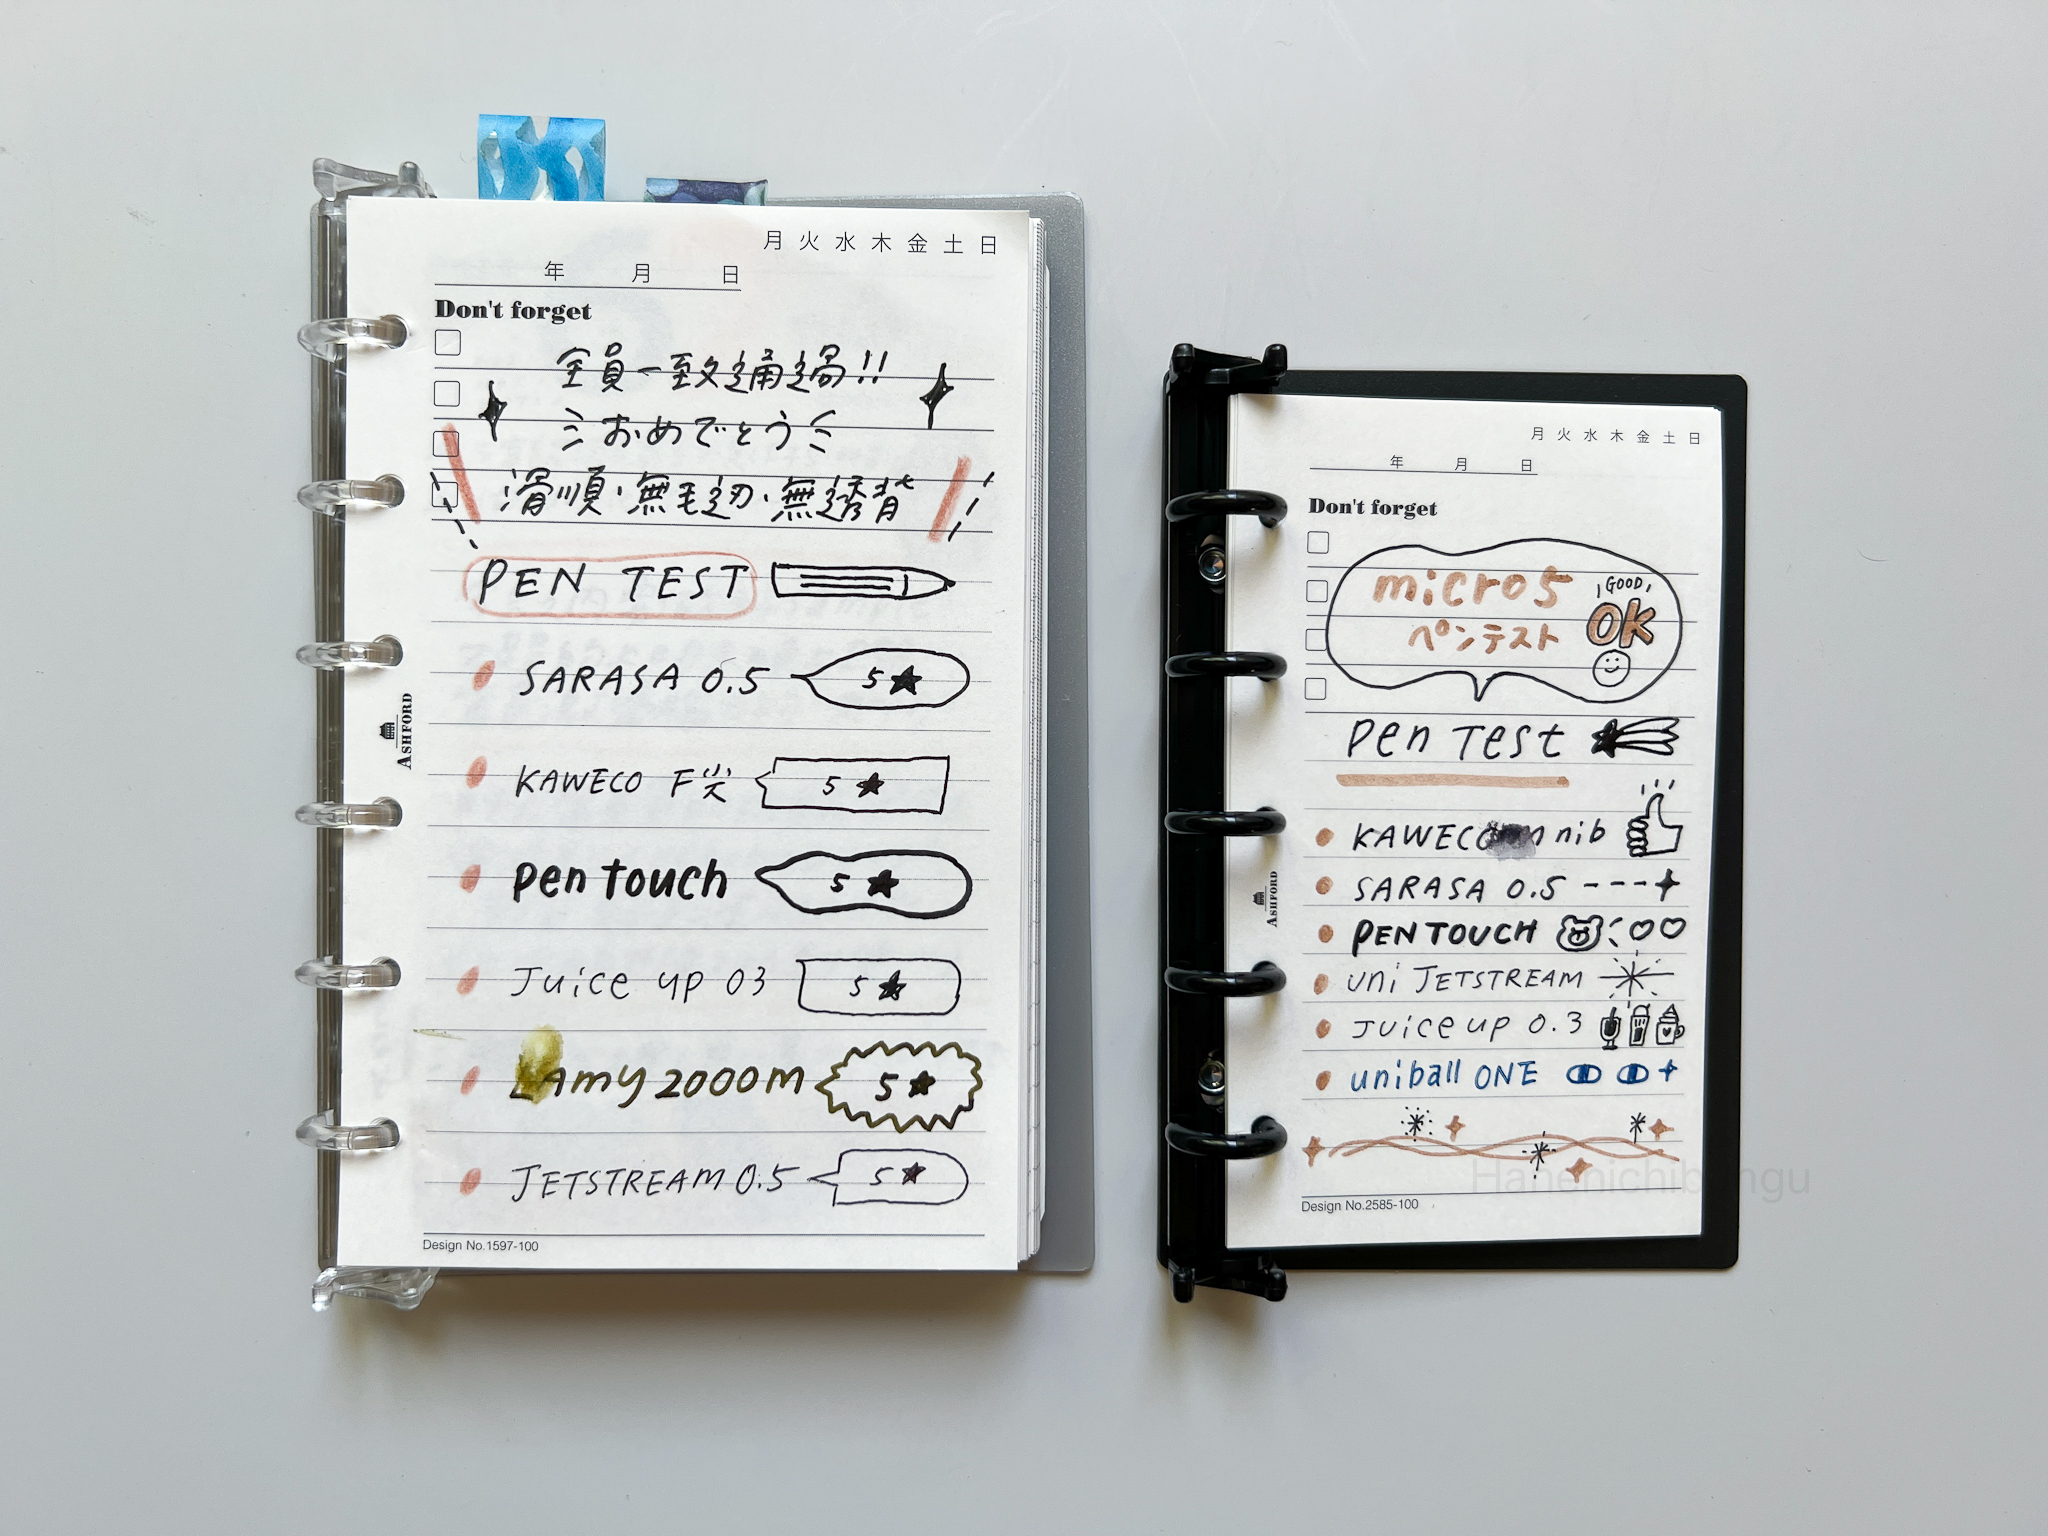 月 火 水 木 金 土 日
年 月 日
Don't forget
全員一致通過!!
おめでとう
滑順、無毛边、無透背
PEN TEST
SARASA 0.5 5★
KAWECO F尖 5★
ASHFORD
pen touch 5★
Juice up 03 5★
Lamy 2000M 5★
JETSTREAM 0.5 5★
Design No.1597-100
月 火 水 木 金 土 日
年 月 日
Don't forget
micro5
GOOD
OK
ペンテスト
Pen Test
KAWECO nib
SARASA 0.5
ASHFORD
PEN TOUCH
uni JETSTREAM
Juice up 0.3
uniball ONE
Design No.2585-100